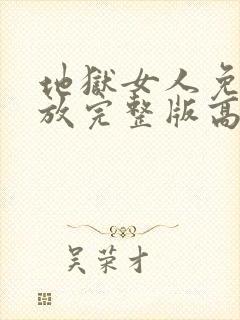 地獄女人免
放完整版高
吴荣才